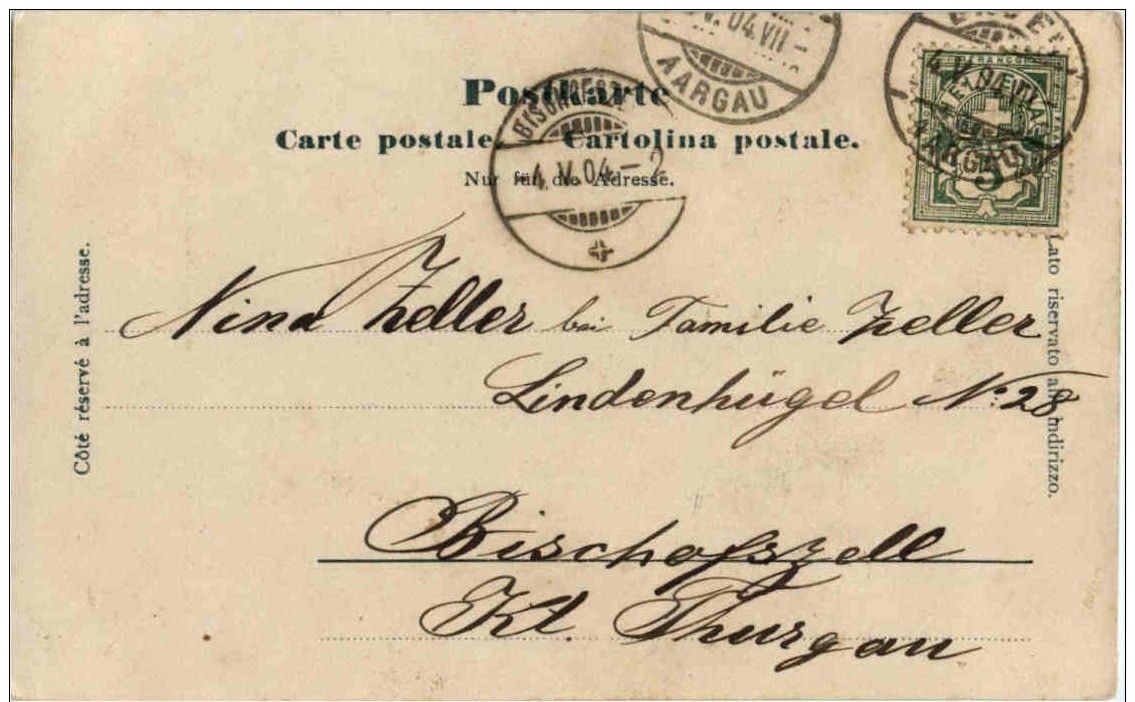 Postkarte
Carte postale. Cartolina postale.
Nur für die Adresse.
V. 04. VII –
AARGAU
4. V. 04 – 2
AARGAU
FRANCO
5
Côté réservé à l'adresse.
Lato riservato all'indirizzo.
Nina Zeller bei Familie Zeller
Lindenhügel No. 28.
Bischofszell
Kt. Thurgau